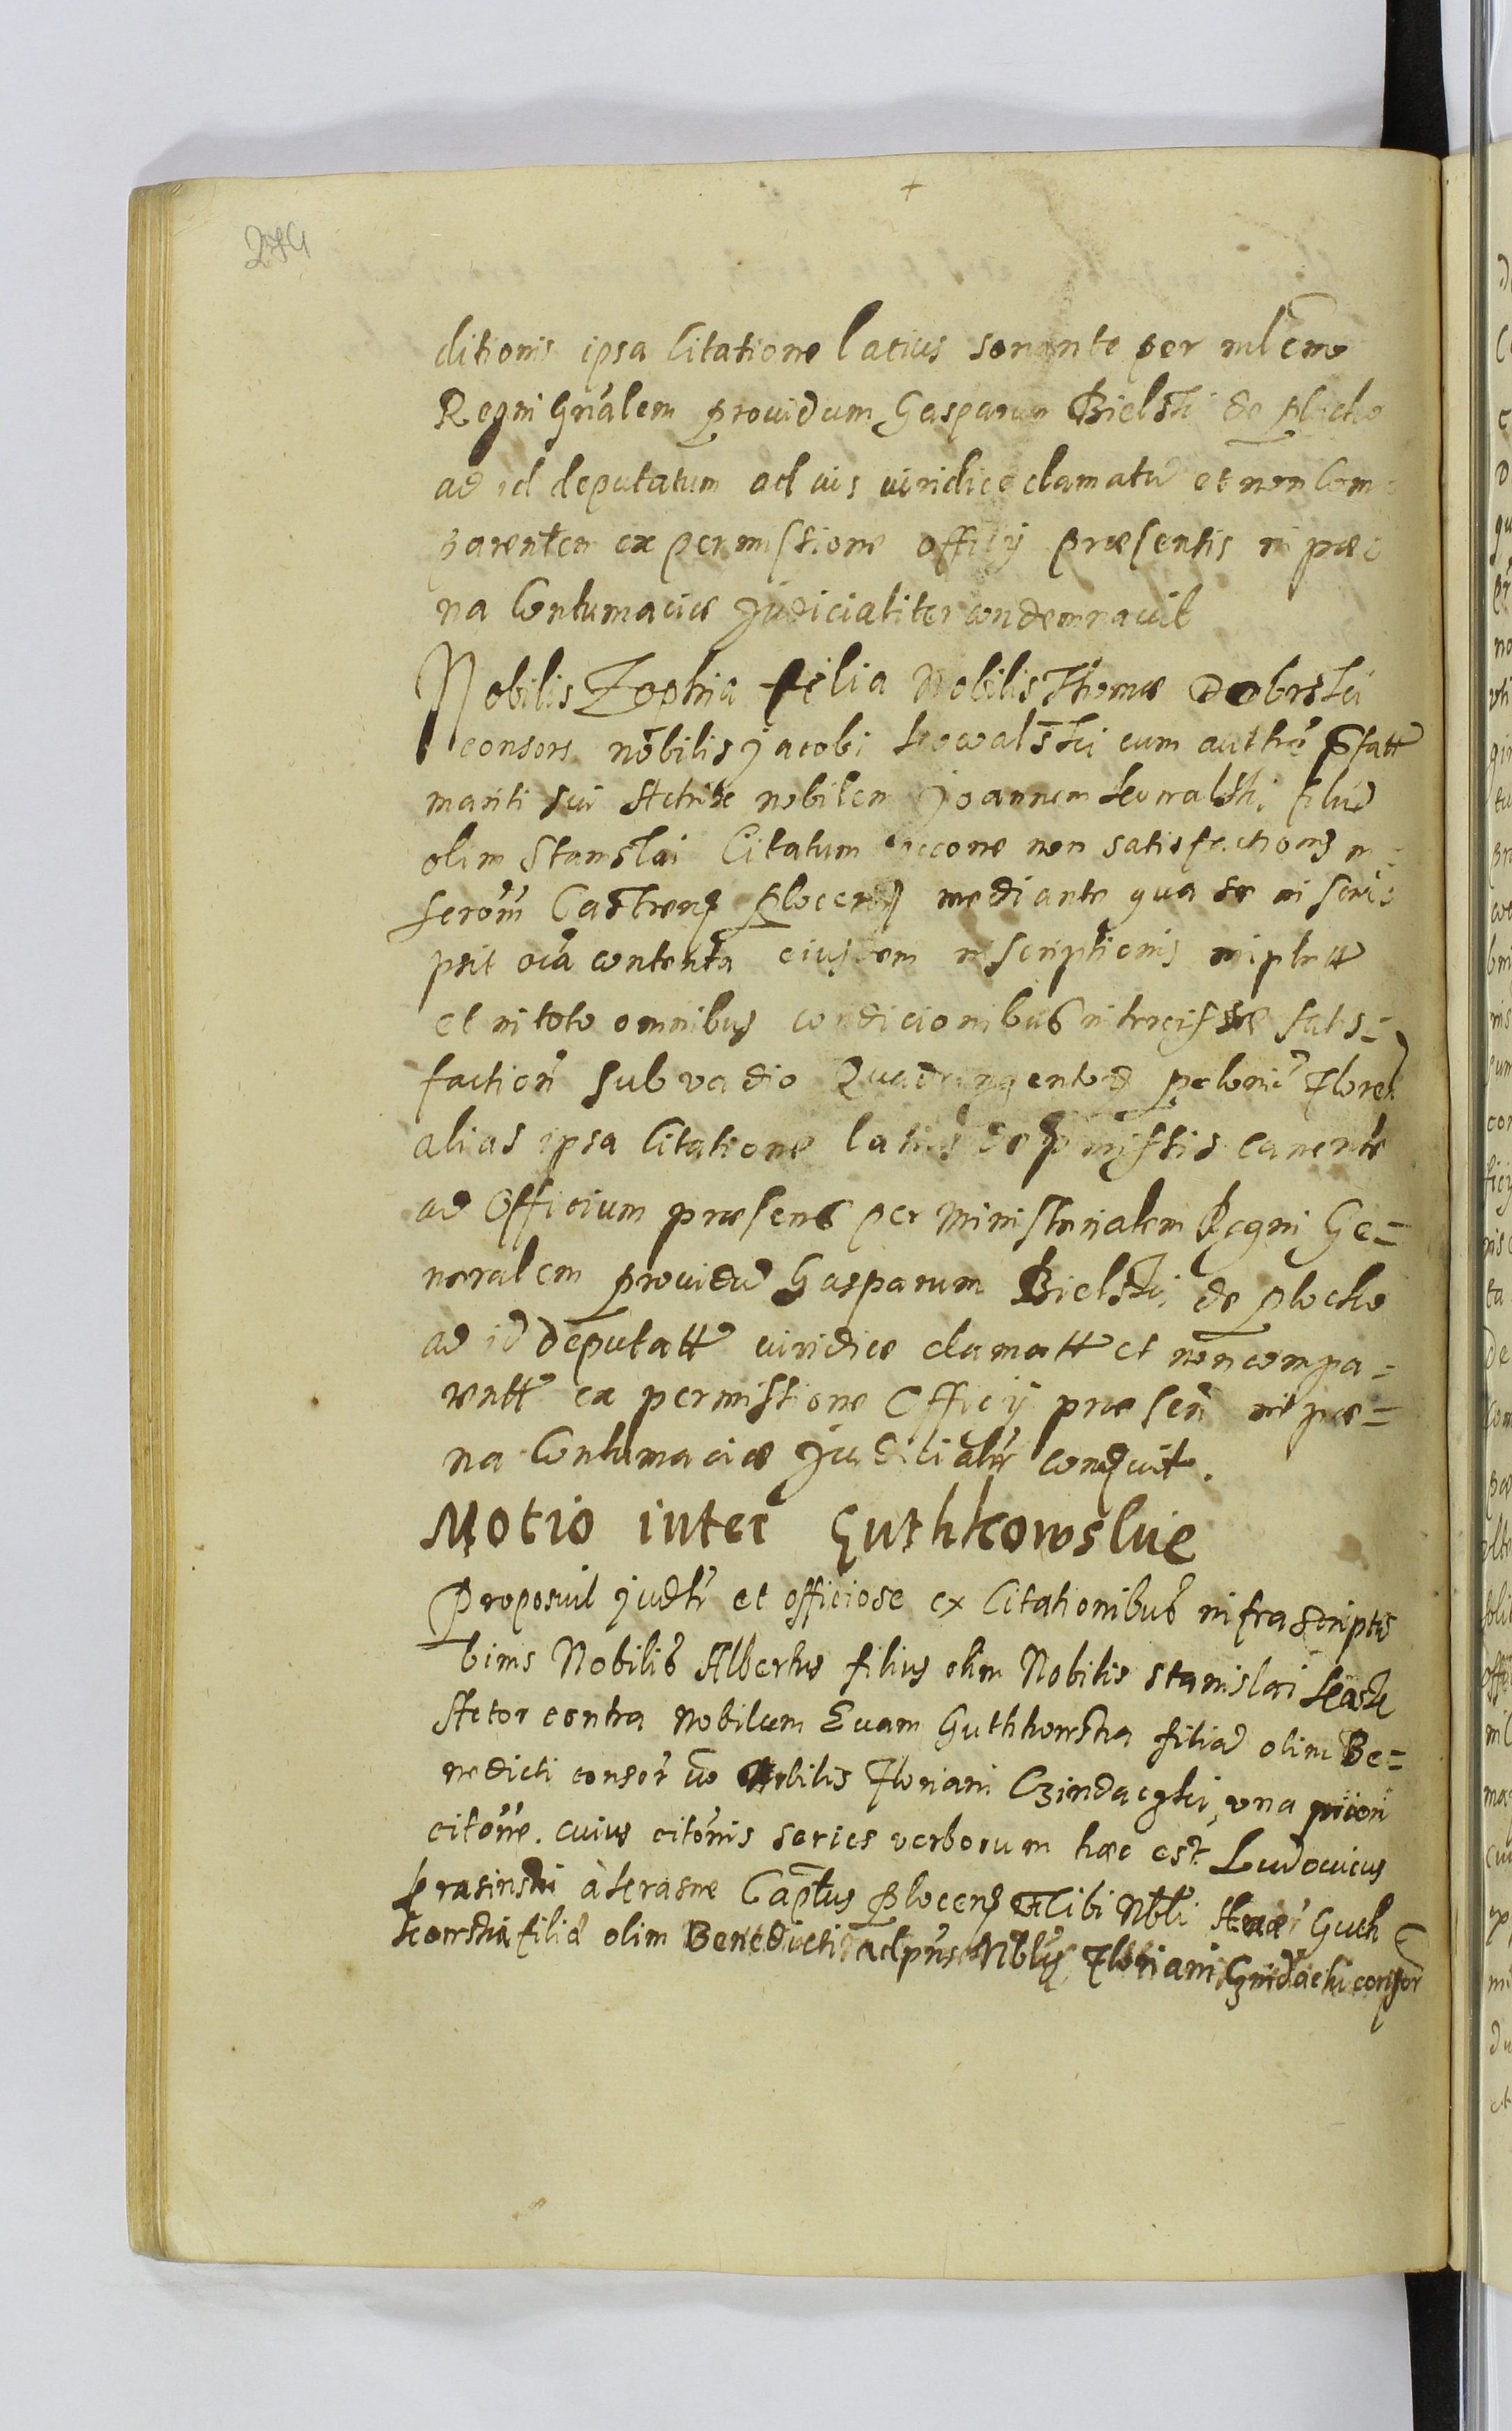 274
ditionis ipsa Citatione latius sonante per mlem
Regni Gnalem prouidum Gasparum Bielski de Plocko
ad id deputatum ad uis iuridice clamatu et non Com
parentem ex permissione officij præsentis in pœ
na Contumaciæ Judicialiter condemnauit
Nobilis Zophia filia Nobilis Thomæ Dobrski
consors nobilis Jacobi Kowalski cum authe
mariti sui Actrix nobilem Joannem Kowalski filiu
olim Stanislai Citatum non satisfactionis
Castren Plocen mediante qua se in scri
psit oia contenta eiusdem inscriptionis implett
et in toto omnibus condicionibus satis=
faction sub vadio Quadringentos poloni Floren
alias ipsa Citatione latius de pmissis canente
ad Officium præsens per Ministerialem Regni Ge=
neralem prouidu Gasparum Bielski de Plocko
ad id deputatt iuridice clamatt et non compa=
rentt ex permissione Officij præsen in pœ=
na Contumaciæ Judicialr conduit.
Motio inter Guthkowskie
Proposuit judlr et officiose ex Citationibus infrascriptis
binis Nobilis Albertus filius olim Nobilis Stanislai
Actor contra Nobilem Euam Guthkowska filia olim Be=
nedicti consor vo Nobilis Floriani Czindaczki, vna priori
citone. cuius citonis series verborum hæc est. Ludouicus
Krasinski à Krasne Captus Plocen Tibi Nbli Guth
kowska filiæ olim Benedicti ad pns Nblis Floriani Czindacki consor